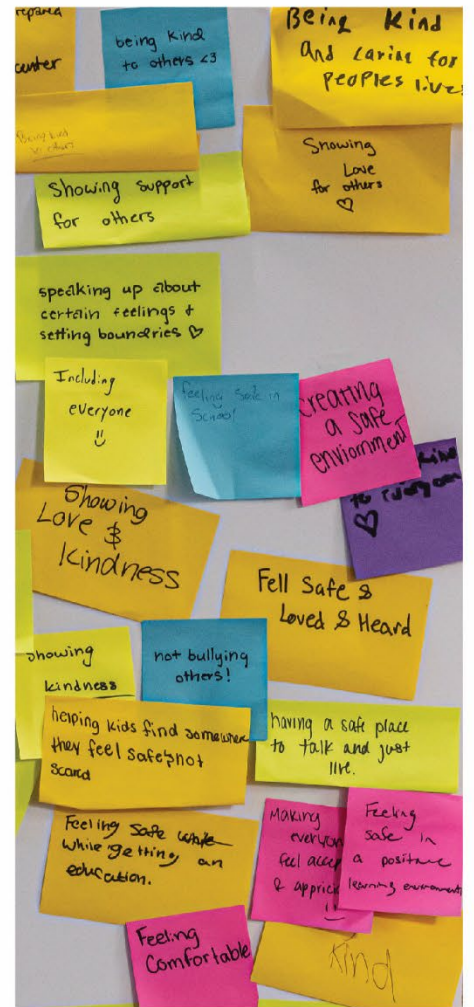 center
being kind
to others <3
Being Kind
and caring for
peoples lives
Being kind
to others
Showing
Love
for others
♡
Showing support
for others
speaking up about
certain feelings &
setting boundries ♡
Including
everyone
feeling safe in
School
Creating
a safe
enviornment
to everyone
♡
Showing
Love &
Kindness
Fell Safe &
Loved & Heard
showing
kindness
not bullying
others!
helping kids find somewhere
they feel safe & not
scared
having a safe place
to talk and just
live.
Feeling safe while
while getting an
education.
Making
everyone
feel
&
Feeling
safe in
a positive
learning environment
Feeling
Comfortable
Kind